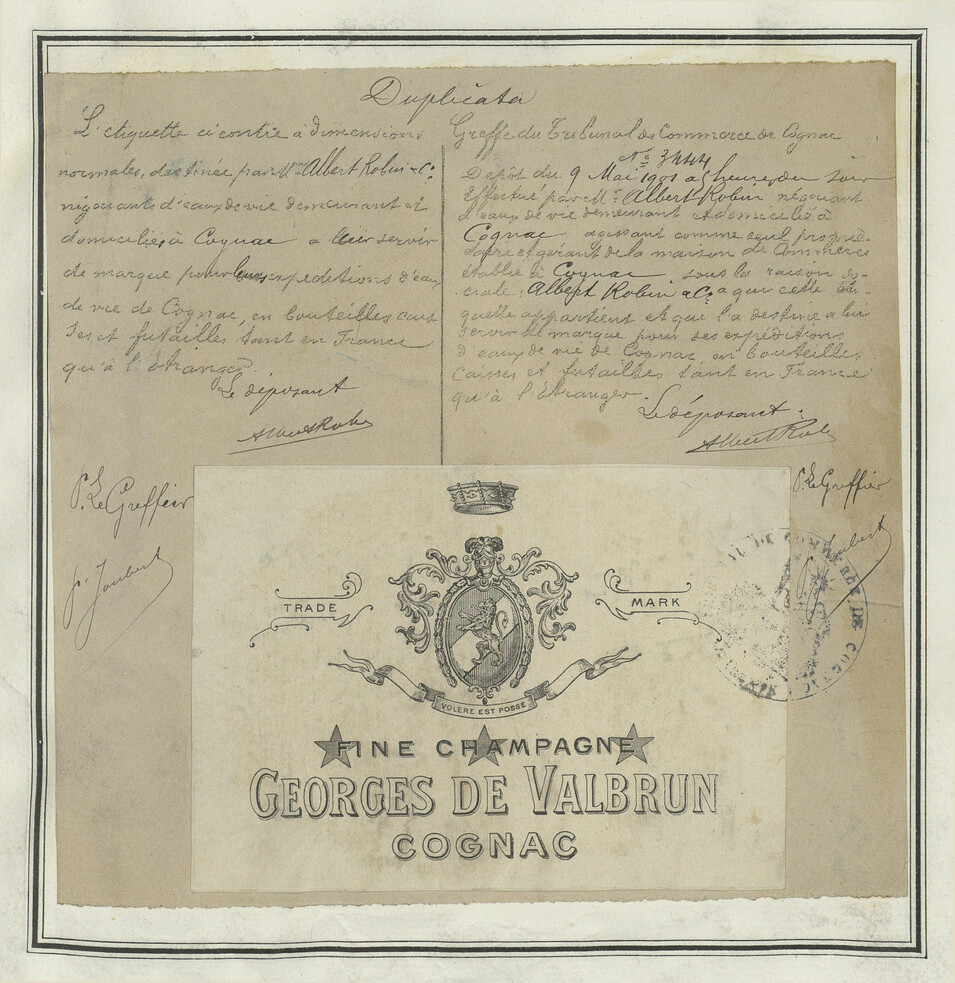 Duplicata
L'étiquette ci contre a dimensions
normales, destinée par Mrs Albert Robin & Co
négociants d'eaux de vie demeurant et
domiciliés à Cognac a leur servir
de marque pour leurs expéditions d'eau
de vie de Cognac, en bouteilles cais
ses et futailles tant en France
qu'à l'Etranger.
Le déposant
Albert Robin
P. Le Greffier
P. Joubert
Greffe du Tribunal de Commerce de Cognac
No 3444
Depôt du 9 Mai 1901 à heure du soir
Effectué par Mr Albert Robin négociant
d'eaux de vie demeurant et domicilié à
Cognac agissant comme seul proprié-
taire et gérant de la maison de Commerce
établie à Cognac sous la raison so-
ciale: Albert Robin & Co a qui cette éti-
quette appartient et qui l'a destinée a lui
servir de marque pour ses expéditions
d'eaux de vie de Cognac, en bouteilles
caisses et futailles tant en France
qu'à l'Etranger.
Le déposant.
Albert Robin
P. Le Greffier
Joubert
TRADE MARK
VOLERE EST POSSE
FINE CHAMPAGNE
GEORGES DE VALBRUN
COGNAC
DE COMMERCE DE COGNAC